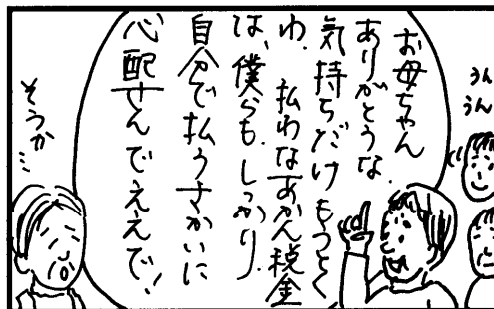 うん
うん
お母ちゃん
ありがとうな。
気持ちだけもろとく
わ。払わなあかん税金
は、僕らもしっかり
自分で払うさかいに
心配せんでええで!
そうか…